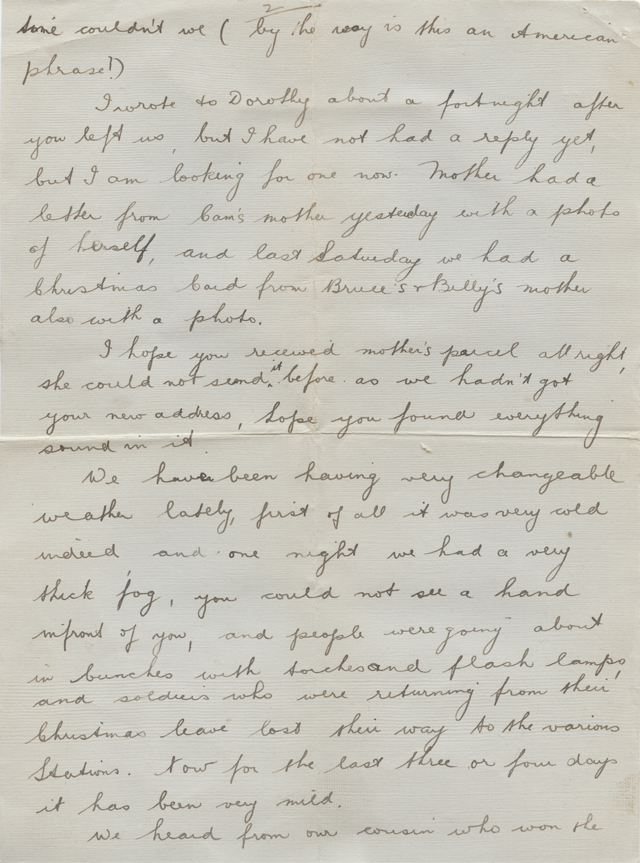 2
time couldn't we ( by the way is this an American
phrase!)
I wrote to Dorothy about a fortnight after
you left us, but I have not had a reply yet,
but I am looking for one now. Mother had a
letter from Cam's mother yesterday with a photo
of herself, and last Saturday we had a
Christmas Card from Bruce's & Billy's mother
also with a photo.
I hope you received mother's parcel all right,
she could not send it before as we hadn't got
your new address, hope you found everything
sound in it.
We have been having very changeable
weather lately, first of all it was very cold
indeed and one night we had a very
thick fog, you could not see a hand
infront of you, and people were going about
in bunches with torches and flash lamps,
and soldiers who were returning from their
Christmas leave lost their way to the various
Stations. Now for the last three or four days
it has been very mild.
We heard from our cousin who won the